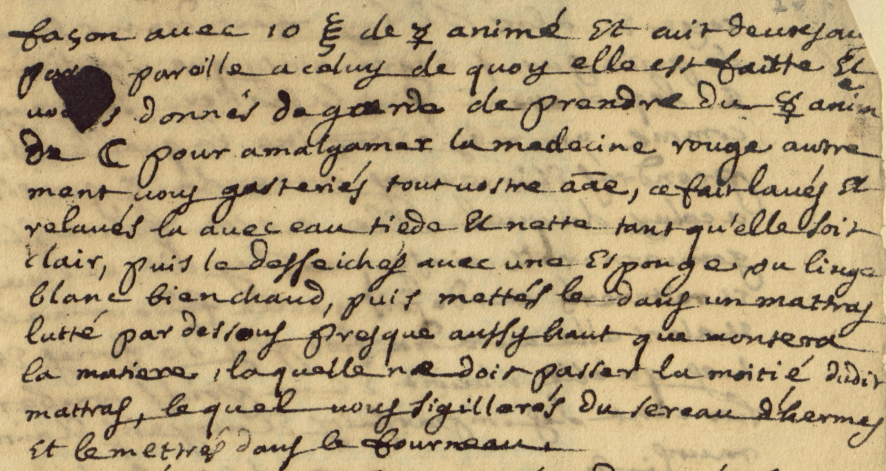 façon avec 10 ℥ de ☿ animé Et cuit deux jou
par pareille a celuy de quoy elle est faitte Et
donnés de garde de prendre du ☿ anim
de ☾ pour amalgamer la medecine rouge autre
ment vous gasteriés tout vostre aãe, ce fait lavés Et
relavés la avec eau tiede Et nette tant qu'elle soit
clair, puis le desseichés avec une Esponge ou linge
blanc bien chaud, puis mettés le dans un mattras
lutté par dessous presque aussy haut que montera
la matiere, laquelle ne doit passer la moitié dudit
mattras, lequel vous sigillerés du sereau d'hermes
Et le mettrés dans le fourneau.